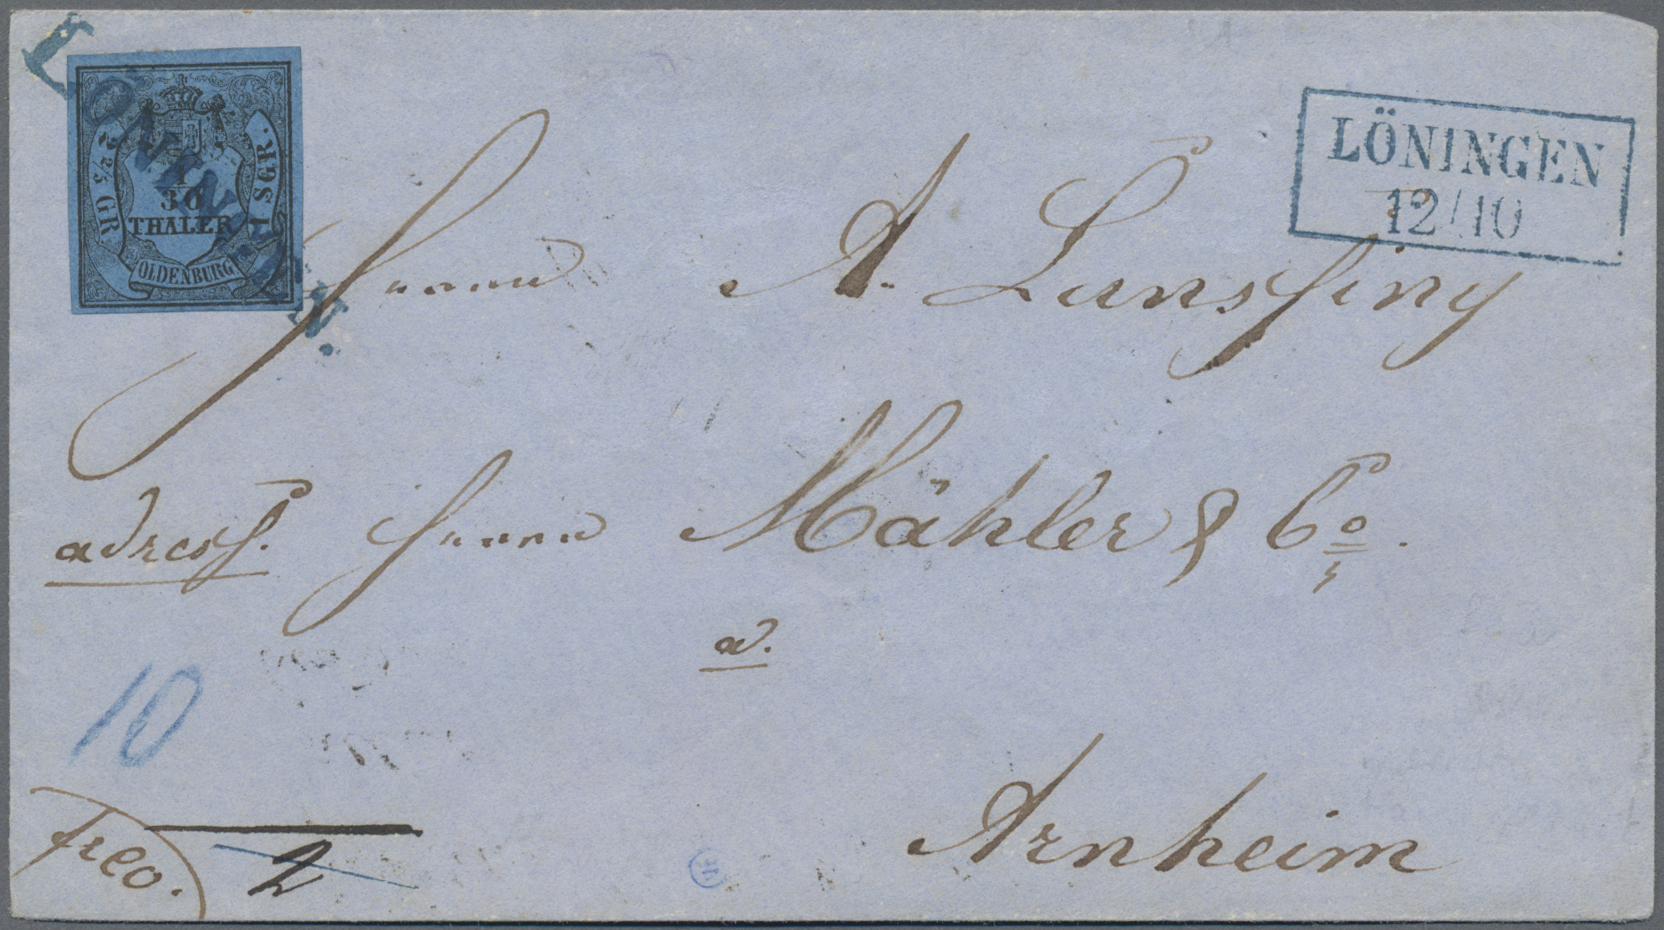 LÖNINGEN.
2 2/5 GR.
1/30
THALER
1 SGR.
OLDENBURG
LÖNINGEN
12/10
Herrn A. Lunsfing
adress. Herrn Mähler & Co.
a.
Arnheim
10
frco.
2